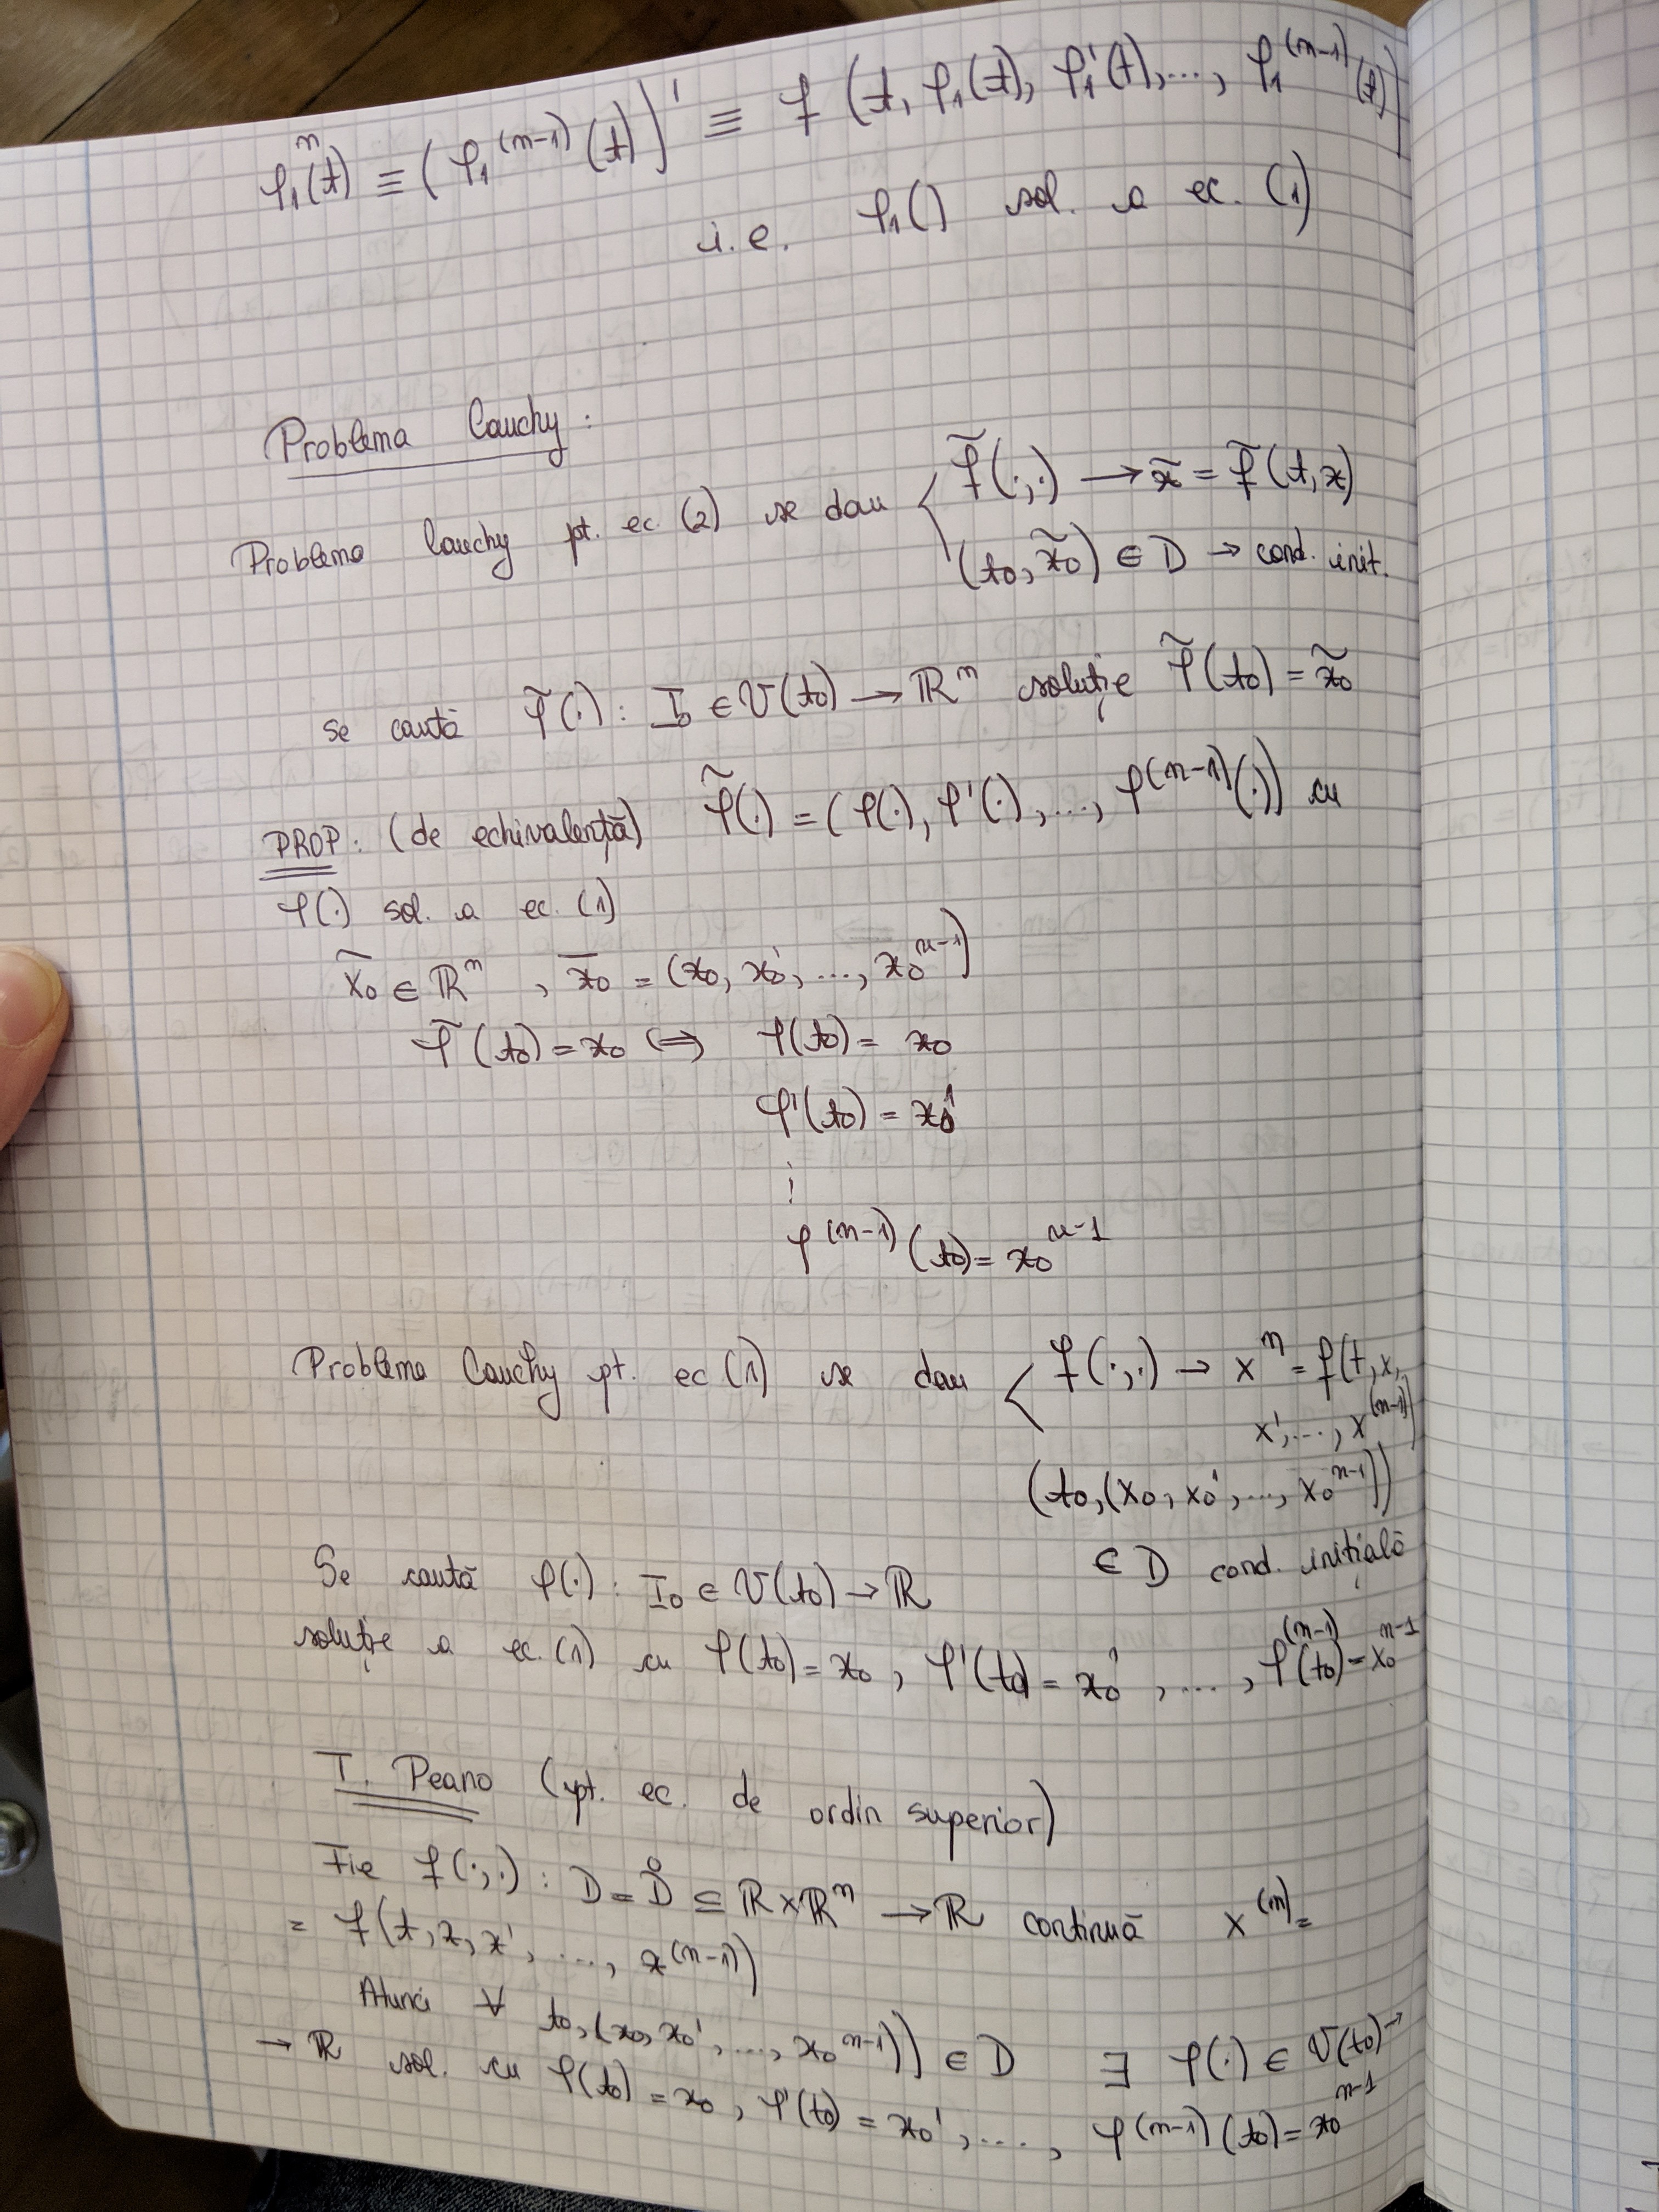 φ₁ⁿ(t) ≡ (φ₁⁽ⁿ⁻¹⁾(t))' ≡ f(t, φ₁(t), φ₁'(t), ..., φ₁⁽ⁿ⁻¹⁾(t))
i.e. φ₁() sol. a ec. (1)
Problema Cauchy :
Problema Cauchy pt. ec. (2) se dau < f̃(·,·) → x̃ = f̃(t,x)
(t₀, x̃₀) ∈ D → cond. init.
se caută φ̃(·) : I₀ ∈ V(t₀) → ℝⁿ soluție φ̃(t₀) = x̃₀
PROP : (de echivalență) φ̃(·) = (φ(·), φ'(·), ..., φ⁽ⁿ⁻¹⁾(·)) cu
φ(·) sol. a ec. (1)
x̃₀ ∈ ℝⁿ , x̄₀ = (x₀, x₀', ..., x₀ⁿ⁻¹)
φ̃(t₀) = x₀ ⇔ φ(t₀) = x₀
φ'(t₀) = x₀¹
⋮
φ⁽ⁿ⁻¹⁾(t₀) = x₀ⁿ⁻¹
Problema Cauchy pt. ec (1) se dau < f(·,·) → xⁿ = f(t, x,
x', ..., x⁽ⁿ⁻¹⁾)
(t₀, (x₀, x₀', ..., x₀ⁿ⁻¹))
∈ D cond. inițială
Se caută φ(·) : I₀ ∈ V(t₀) → ℝ
soluție a ec. (1) cu φ(t₀) = x₀ , φ'(t₀) = x₀¹ , ... , φ⁽ⁿ⁻¹⁾(t₀) = x₀ⁿ⁻¹
T. Peano (pt. ec. de ordin superior)
Fie f(·,·) : D = D̊ ⊆ ℝ×ℝⁿ → ℝ continuă x⁽ⁿ⁾ =
= f(t, x, x', ..., x⁽ⁿ⁻¹⁾)
Atunci ∀ t₀, (x₀, x₀', ..., x₀ⁿ⁻¹)) ∈ D ∃ φ(·) ∈ V(t₀) →
→ ℝ sol. cu φ(t₀) = x₀ , φ'(t₀) = x₀' , ... , φ⁽ⁿ⁻¹⁾(t₀) = x₀ⁿ⁻¹